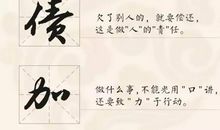 债
欠了别人的，就要偿还，
这是做"人"的"责"任。
加
做什么事，不能光用"口"讲，
还要致"力"于行动。